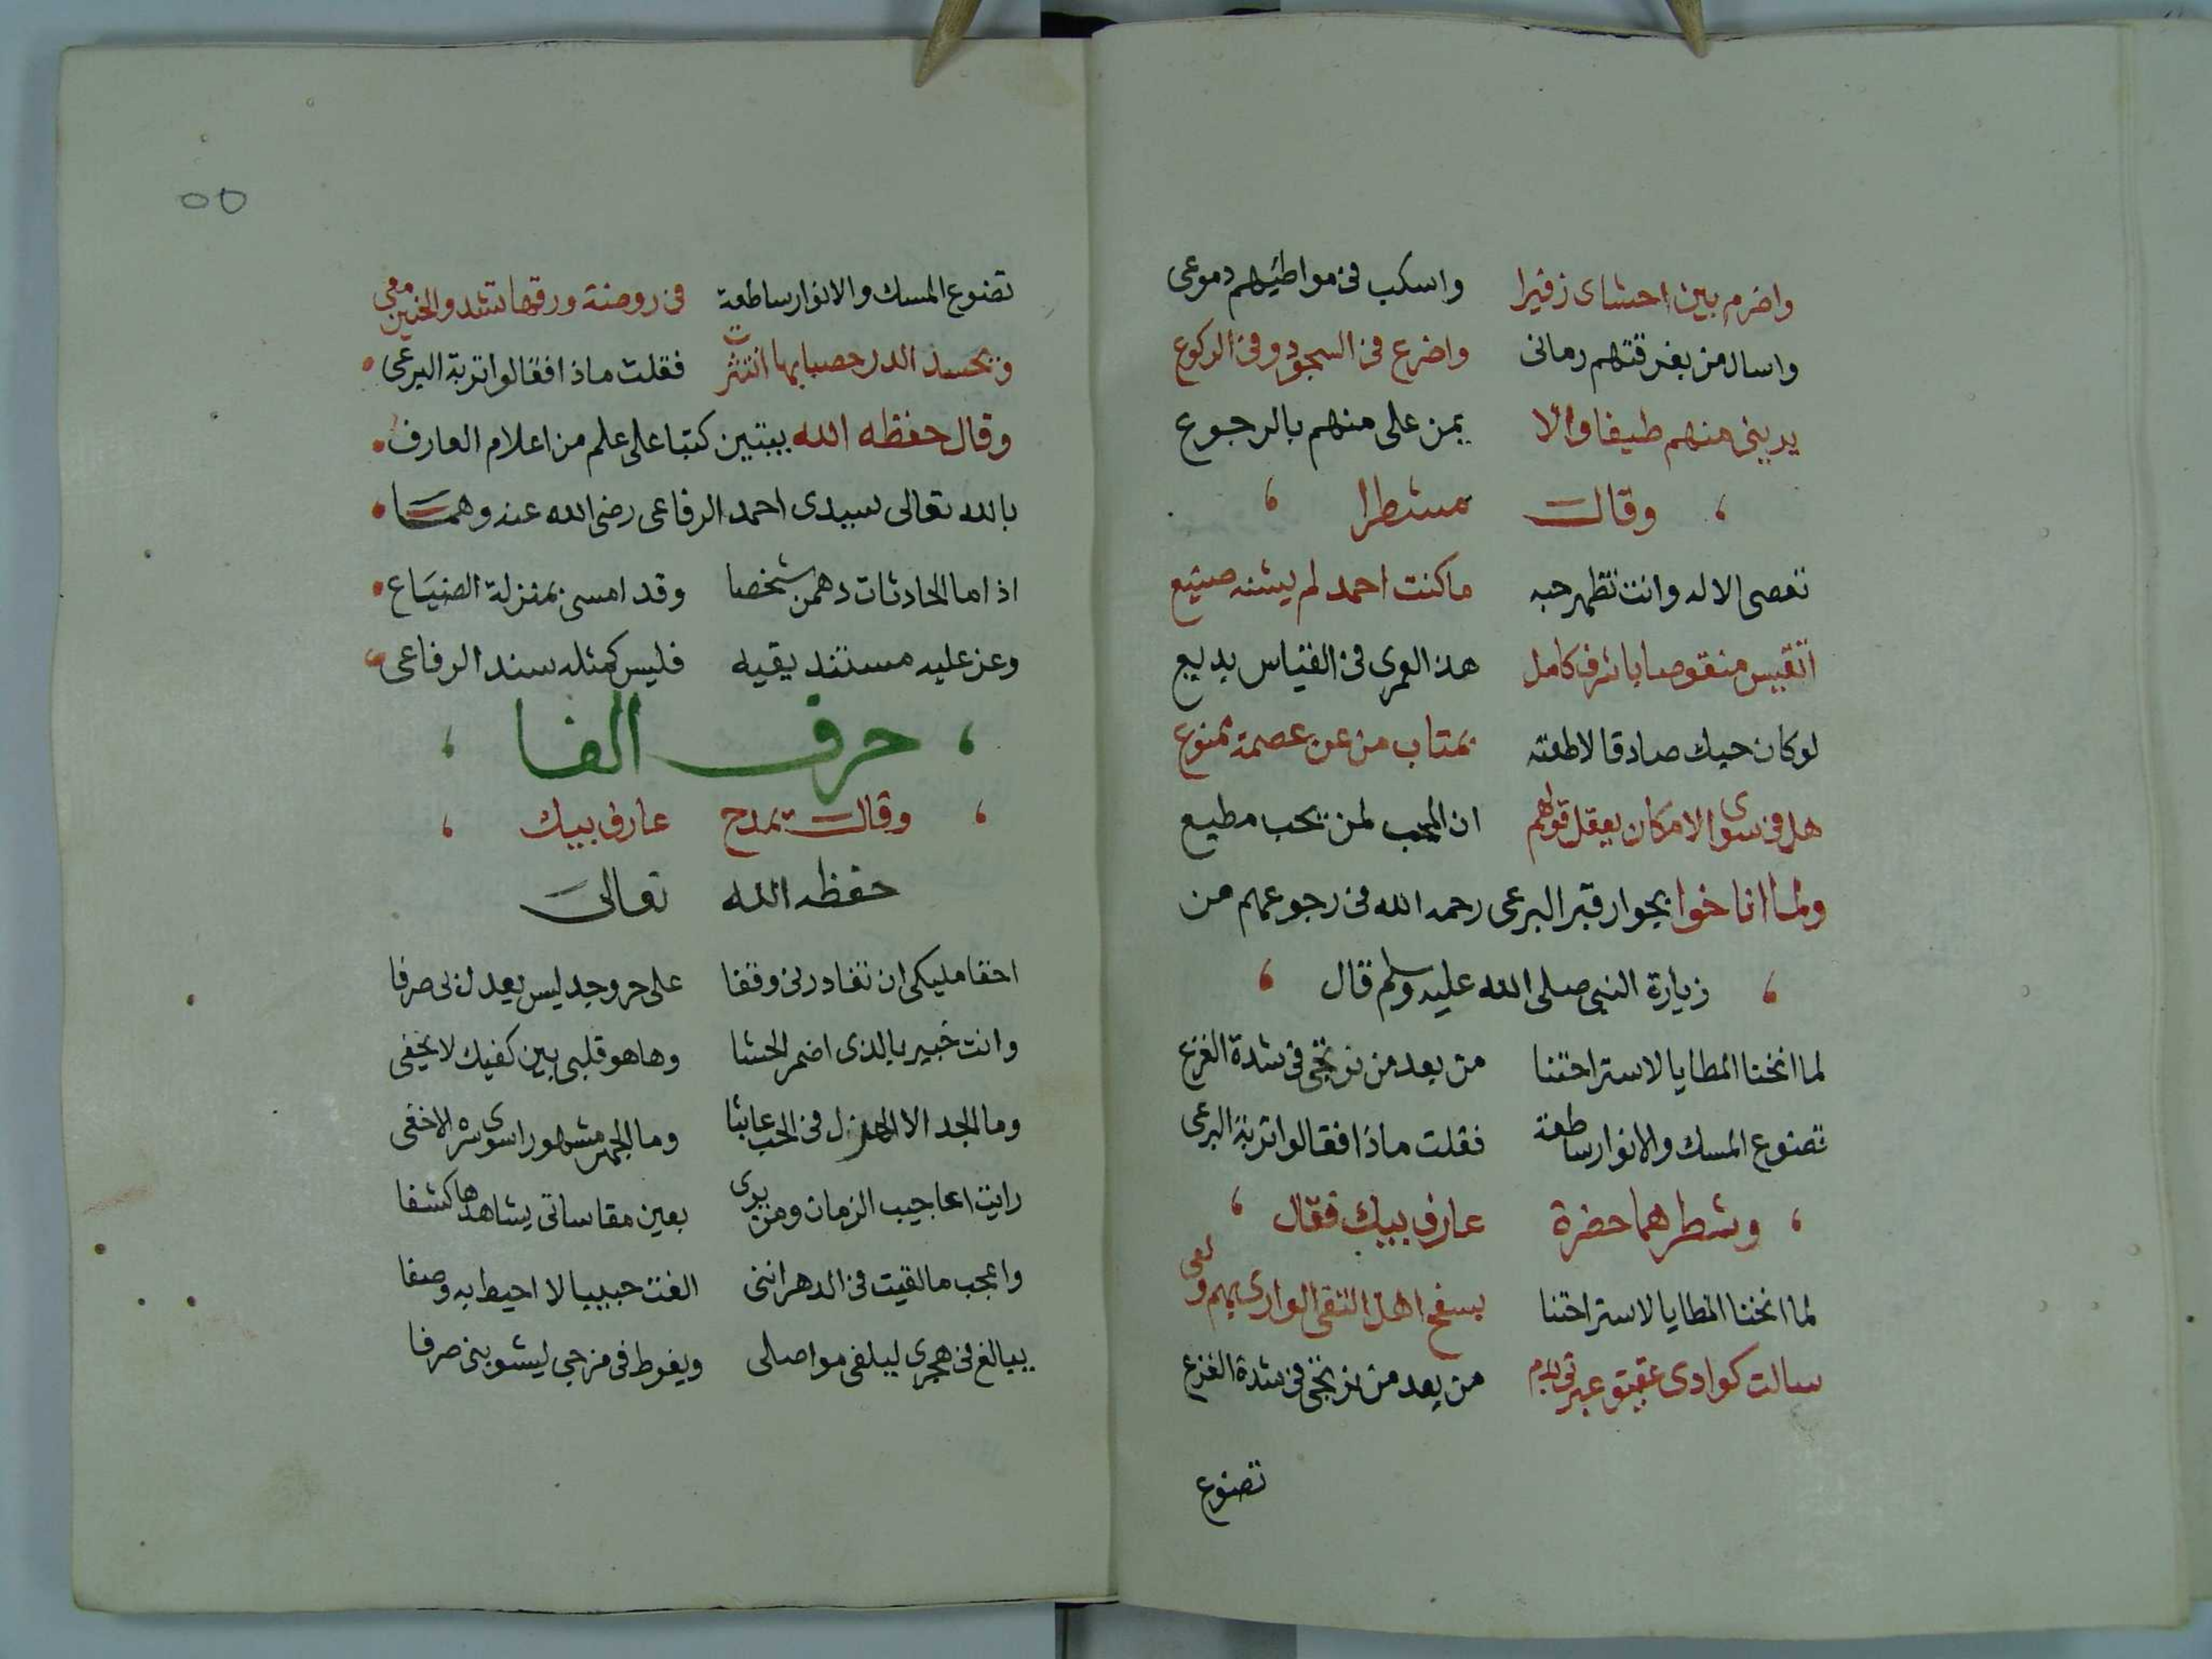 واضرم بين احشاى زفيرا واسكب فى مواطيهم دموعى
واسال من بفرقتهم رمانى واضرع فى السجود وفى الركوع
يرينى منهم طيفا والا يمن على منهم بالرجوع
وقال مشطرا
تعصى الاله وانت تظهر حبه ماكنت احمد لم يشنه صنيع
اتقيس منقوصا باشرف كامل هذا لعمرى فى القياس بديع
لو كان حبك صادقا لاطعته بمتاب من عن عصمة ممنوع
هل فى سوى الامكان يعقل قولهم ان المحب لمن يحب مطيع
ولما اناخوا بجوار قبر البرعى رحمه الله فى رجوعهم من
زيارة النبى صلى الله عليه وسلم قال
لما انخنا المطايا لاستراحتنا من بعد من نرتجى فى شدة الفزع
تضوع المسك والانوار ساطعة فقلت ماذا فقالوا تربة البرعى
وشطرهما حضرة عارف بيك فقال
لما انخنا المطايا لاستراحتنا بسفح اهل التقى الوارى بهم ولعى
سالت كوادى عقيق من بعد من نرتجى فى شدة الفزع
تضوع
٥٥
تضوع المسك والانوار ساطعة فى روضة ورقها تشدو الحنين معى
وتحسد الدر حصبا بها انتثرت فقلت ماذا فقالوا تربة البرعى
وقال حفظه الله ببتين كتبا على علم من اعلام العارف
بالله تعالى سيدى احمد الرفاعى رضى الله عنه وهمـــا
اذا ما الحادثات دهمن شخصا وقد امسى بمنزلة الضياع
وعز عليه مستند يقيه فليس كمثله سند الرفاعى
حرف الفا
وقال يمدح عارف بيك
حفظه الله تعالى
احقا مليكى ان تغادرنى وقفا على حر وجد ليس يعدل لى صرفا
وانت خبير بالذى اضمر الحشا وها هو قلبى بين كفيك لا يخفى
وما الجد الا الهزل فى الحب عابثا وما الجهر مشهورا سوى سره الاخفى
رايت اعاجيب الزمان ومن يرى بعين مقاساتى يشاهدها كشفا
واعجب ما لقيت فى الدهر اننى الفت حبيبا لا احيط به وصفا
يبالغ فى هجرى ليلغى مواصلى ويفرط فى مزجى ليشوبنى صرفا